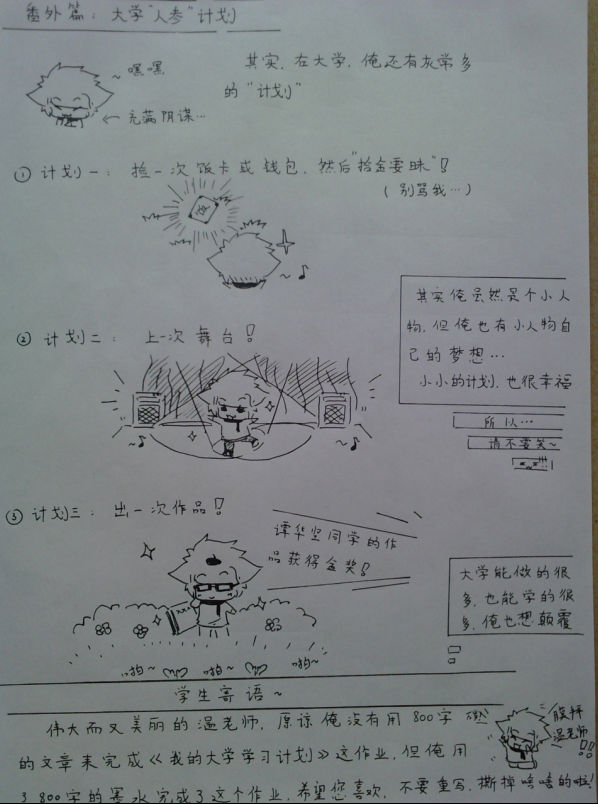 番外篇：大学"人参"计划
嘿嘿
充满阴谋…
其实，在大学，俺还有灰常多
的"计划"
① 计划一：捡一次饭卡或钱包，然后"拾金要昧"！
（别骂我…）
饭
② 计划二：上一次舞台！
其实俺虽然是个小人
物，但俺也有小人物自
己的梦想…
小小的计划，也很幸福
所以…
请不要笑~
③ 计划三：出一次作品！
谭华坚同学的作
品获得金奖！
大学能做的很
多，也能学的很
多，俺也想颠覆
啪~ 啪~ 啪~
学生寄语~
伟大而又美丽的温老师，原谅俺没有用800字
的文章来完成《我的大学学习计划》这作业，但俺用
了800字的墨水完成了这个作业，希望您喜欢，不要重写，撕掉啥啥的啦！
膜拜
温老师
!!